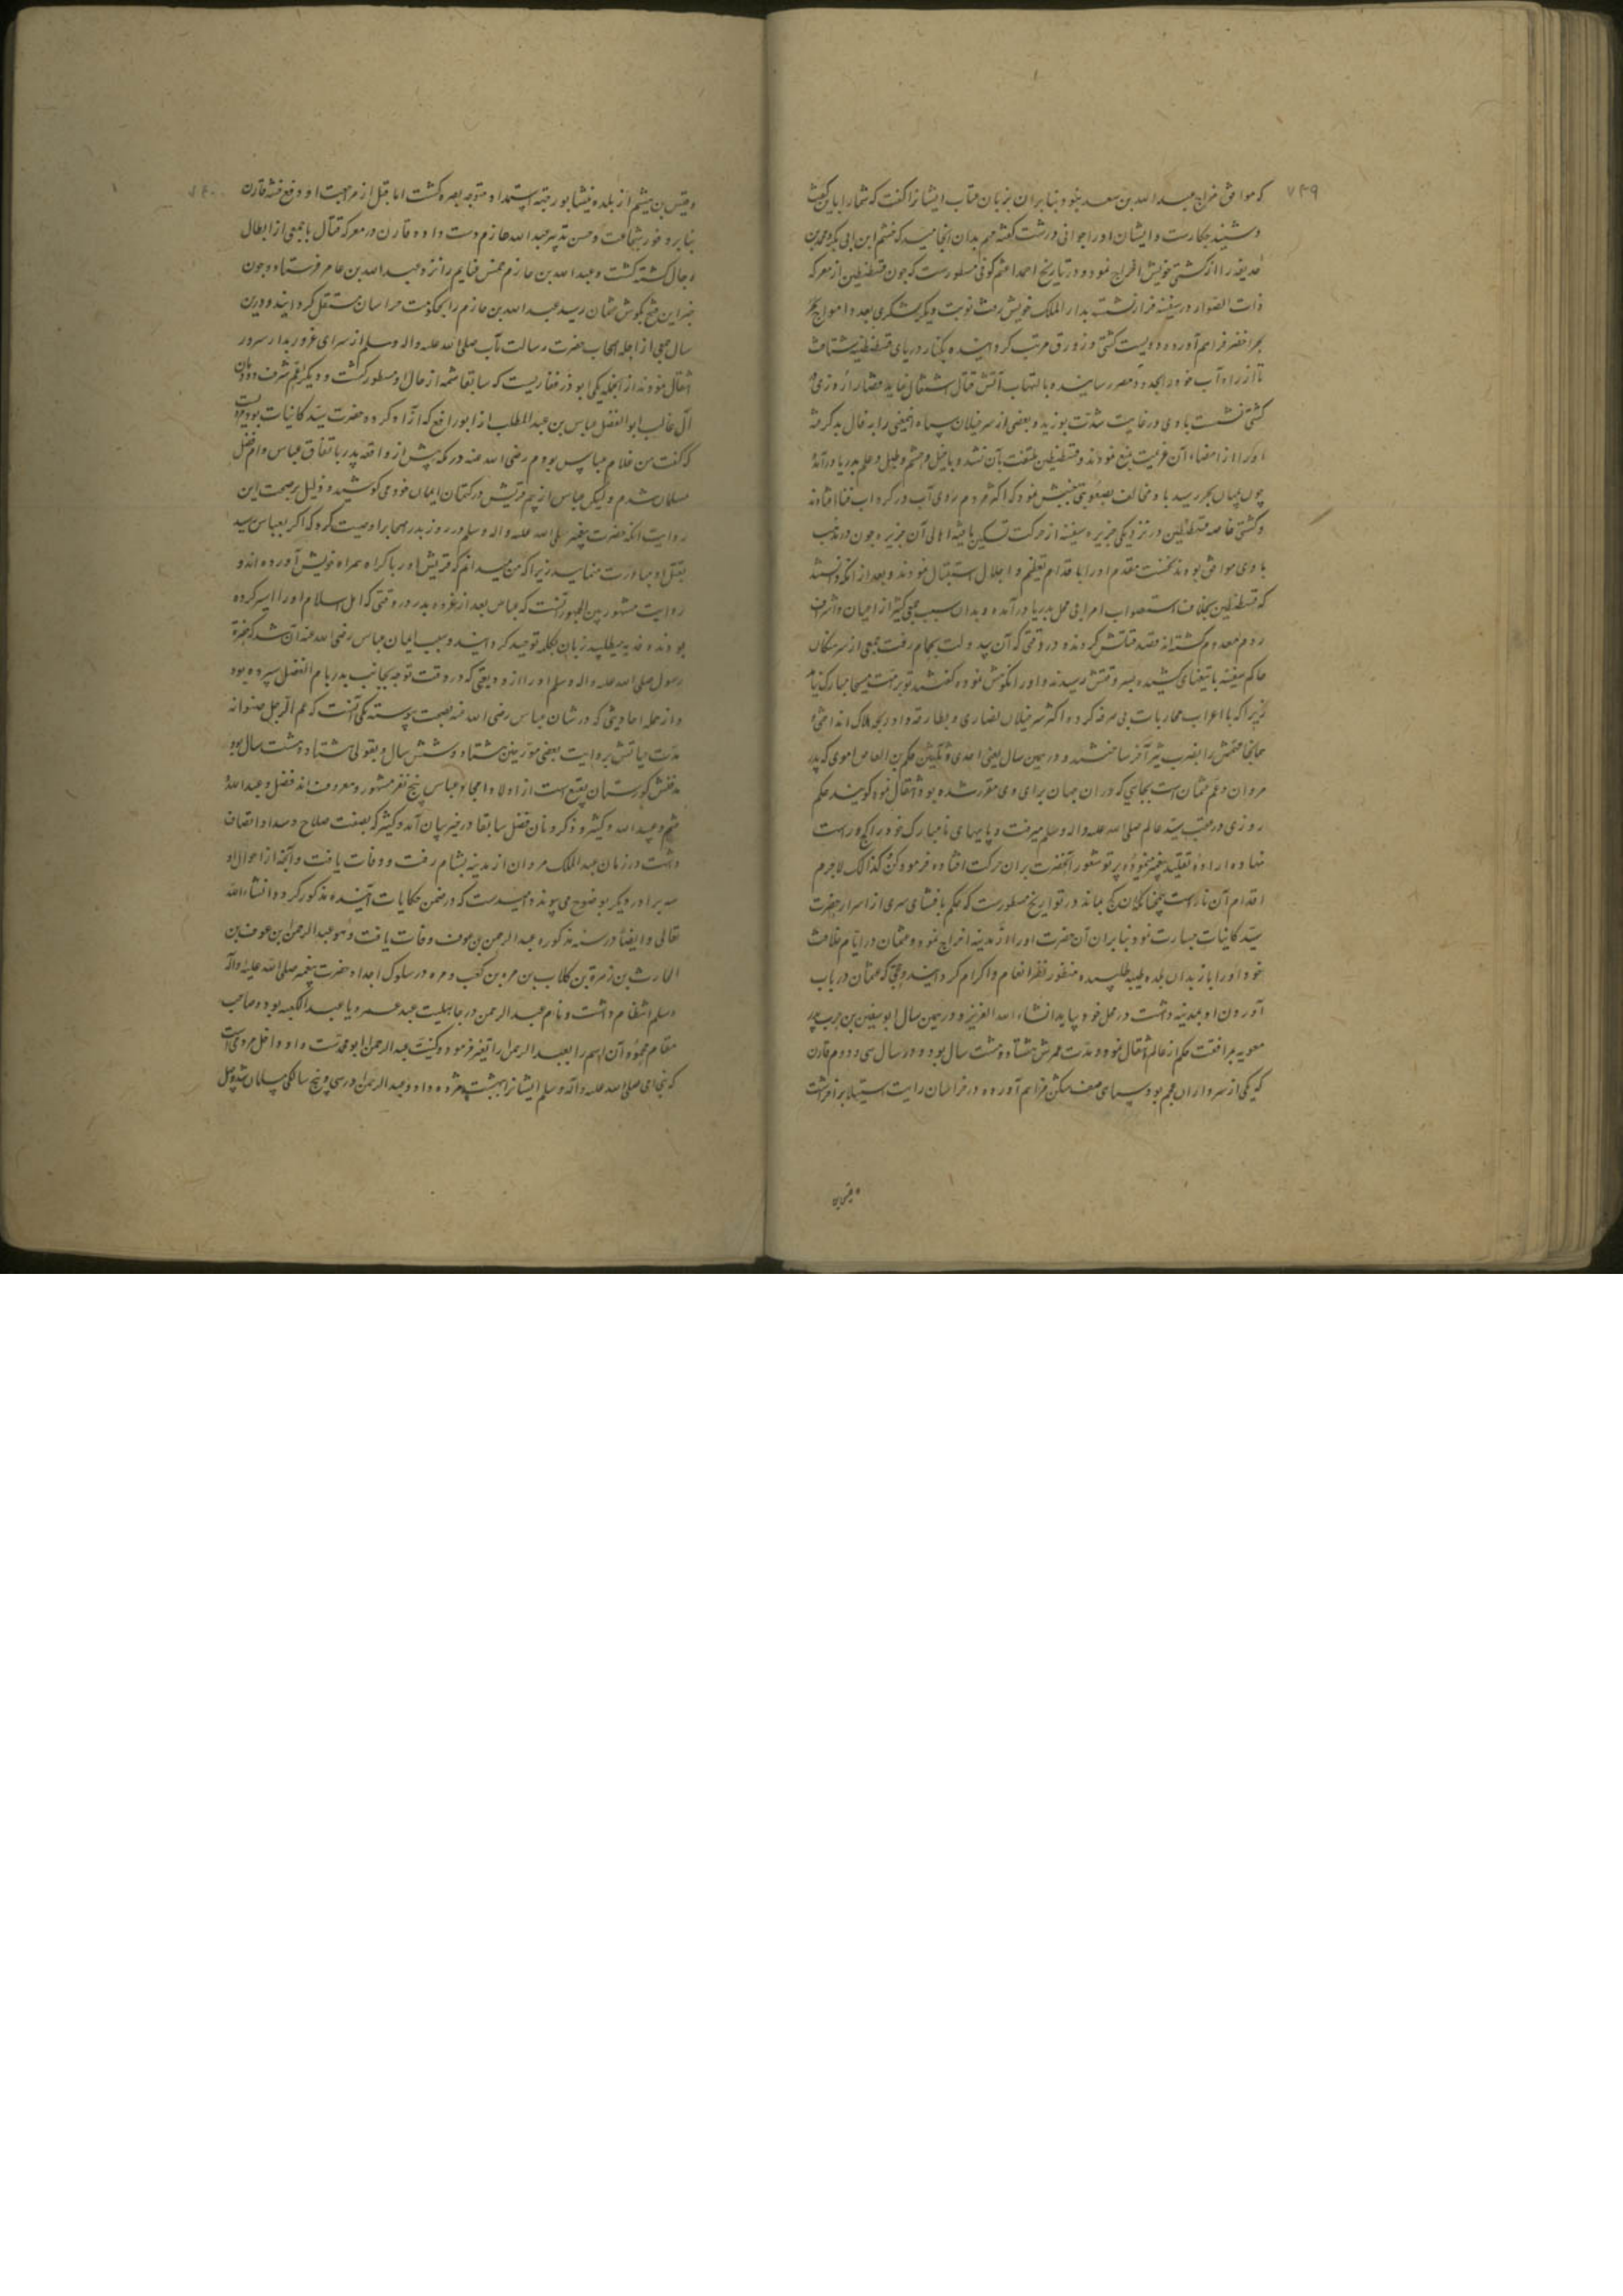 ۷۳۹
که موافق مزاج عبدالله بن سعد بنود بنابران بزبان عتاب ایشانرا گفت که شمارا باین گفت
و شنید چکارست و ایشان اورا جوابی درشت گفته مهم بدان انجامید که خشم ابن ابی بکر و محمد بن
حذیفه را از کشتی خویش اخراج نمود و در تاریخ احمد اعثم کوفی مسطورست که چون قسطنطین از معرکه
ذات الصوار در سفینه فرار نشسته بدار الملک خویش رفت نوبت دیگر لشکری بعدد امواج بحر
بحر اخضر فراهم آورده دویست کشتی و زورق مرتب گردانیده بکنار دریای قسطنطنیه شتافت
تا از راه آب خود را بحدود مصر رسانیده بالتهاب آتش قتال اشتغال نماید قضارا روزی که
کشتی نشست بادی در غایت شدت بوزید و بعضی از سرخیلان سپاه انمعنی را بر فال بد گرفته
اورا از امضاء آن عزیمت منع نمودند و قسطنطین ملتفت بآن نشد و با خیل و حشم و طبل و علم بدریا درآمد
چون بمیان بحر رسید باد مخالف بصعوبتی بجنبش نمود که اکثر مردم روی آب در گرداب فنا افتادند
و کشتی خاصه قسطنطین در نزدیکی جزیره سفینه از حرکت تسکین یافته اهالی آن جزیره چون در مذهب
با وی موافق بودند نخست مقدم اورا باقدام تعظیم و اجلال استقبال نمودند و بعد از انکه دانستند
که قسطنطین بخلاف استصواب امرا بی محل بدریا درآمده و بدان سبب جمعی کثیر از اعیان و اشراف
روم معدوم گشته‌اند قصد قتلش کردند و در وقتی که آن بید ولت بحمام رفت جمعی از سرهنگان
حاکم سفینه با تیغهای کشیده بسر وقتش رسیدند و اورا نکوهش نموده گفتند تو بر امت مسیحا مبارک نیامدی
زیرا که با اعراب محاربات بی صرفه کرده اکثر سرخیلان نصاری و بطارقه را در بحر هلاک انداختی و
همانجا مهمش را بضرب تیر آخر ساختند و در همین سال یعنی احدی و ثلثین حکم بن العاص اموی که پدر
مروان و عم عثمان است بجایی که در ان جهان برای وی مقرر شده بود انتقال نمود گویند حکم
روزی در عقب سید عالم صلی الله علیه و اله و سلم میرفت و پایهای نامبارک خود را کج و راست
نهاده اراده تقلید پیغمبر نموده پرتو شعور آنحضرت بران حرکت افتاده فرمود که کن کذالک لاجرم
اقدام آن ناراست همچنان کج بماند و در تواریخ مسطورست که حکم بافشای سری از اسرار حضرت
سید کاینات جسارت نمود بنابران آن حضرت اورا از مدینه اخراج نمود و عثمان در ایام خلافت
خود اورا باز بدان بلده طیبه طلبیده منظور نظر انعام و اکرام گردانید و حجتی که عثمان در باب
آوردن او بمدینه داشت در محل خود بیاید انشاء الله العزیز و در همین سال ابو سفین بن حرب پدر
معویه بمرافقت حکم از عالم انتقال نمود و مدت عمرش هشتاد و هشت سال بود و در سال سی و دوم قارن
که یکی از سرداران عجم بود سپاهی صف شکن فراهم آورده در خراسان رایت استیلا برافراشت
و قیس بن
و قیس بن هیثم از بلده نیشابور جهة استمداد متوجه بصره گشت اما قبل از مراجعت او دفع فتنه قارن
بنابر وفور شجاعت و حسن تدبیر عبدالله حازم دست داده قارن در معرکه قتال با جمعی از ابطال
رجال کشته گشت و عبدالله بن حازم خمس غنایم را نزد عبدالله بن عامر فرستاد و چون
خبر این فتح بگوش عثمان رسید عبدالله بن حازم را بحکومت خراسان مستقل گردانید و درین
سال جمعی از اجله اصحاب حضرت رسالت مآب صلی الله علیه و اله و سلم از سرای غرور بدار سرور
انتقال نمودند از انجمله یکی ابو ذر غفاریست که سابقا شمه از حال او مسطور گشت و دیگر عم اشرف دودمان
آل غالب ابوالفضل عباس بن عبدالمطلب از ابورافع که آزاد کرده حضرت سید کاینات بود مرویست
که گفت من غلام عباس بودم رضی الله عنه در مکه پیش از واقعه بدر باتفاق عباس و ام فضل
مسلمان شدم و لیکن عباس از بیم قریش در کتمان ایمان خود می کوشید و دلیل بر صحت این
روایت آنکه حضرت پیغمبر صلی الله علیه و اله و سلم در روز بدر صحابرا وصیت کرد که اگر بعباس رسید
بقتل او مبادرت منمایید زیرا که من میدانم که قریش اورا باکراه همراه خویش آورده‌اند و
روایت مشهور بین الجمهور آنست که عباس بعد از غزوه بدر در وقتی که اهل اسلام اورا اسیر کرده
بودند و فدیه میطلبید زبان بکلمه توحید گردانید و سبب ایمان عباس رضی الله عنه آن شد که حضرة
رسول صلی الله علیه و اله و سلم اورا از ودیعتی که در وقت توجه بجانب بدر بام الفضل سپرده بود
و از جمله احادیثی که در شان عباس رضی الله عنه بصحت پیوسته یکی آنست که عم الرجل صنو ابیه
مدت حیاتش بروایت بعضی مورخین هشتاد و شش سال و بقولی هشتاد و هشت سال بود
مدفنش گورستان بقیع است از اولاد امجاد عباس پنج نفر مشهور و معروف اند فضل و عبدالله و
قثم و عبیدالله و کثیر و ذکر وفات فضل سابقا در حیز بیان آمد و کثیر که بصفت صلاح و سداد اتصاف
داشت در زمان عبدالملک مروان از مدینه بشام رفت و وفات یافت و آنچه از احوال او
سه برادر دیگر بوضوح می پیوندد امیدست که در ضمن حکایات آینده مذکور گردد انشاء الله
تعالی و ایضا در سنه مذکوره عبدالرحمن بن عوف وفات یافت و هو عبدالرحمن بن عوف بن
الحارث بن زهرة بن کلاب بن مره بن کعب و مره در سلوک اجداد حضرت پیغمبر صلی الله علیه و اله
و سلم انتظام داشت و نام عبدالرحمن در جاهلیت عبد عمرو یا عبدالکعبه بود و صاحب
مقام محمود آن اسم را بعبدالرحمن تغیر فرمود و کنیت عبدالرحمن ابو محمدست و او داخل مردمی است
که نبی امی صلی الله علیه و آله و سلم ایشانرا ببهشت مژده داد و عبدالرحمن در سی و پنج سالگی مسلمان شد و مثل